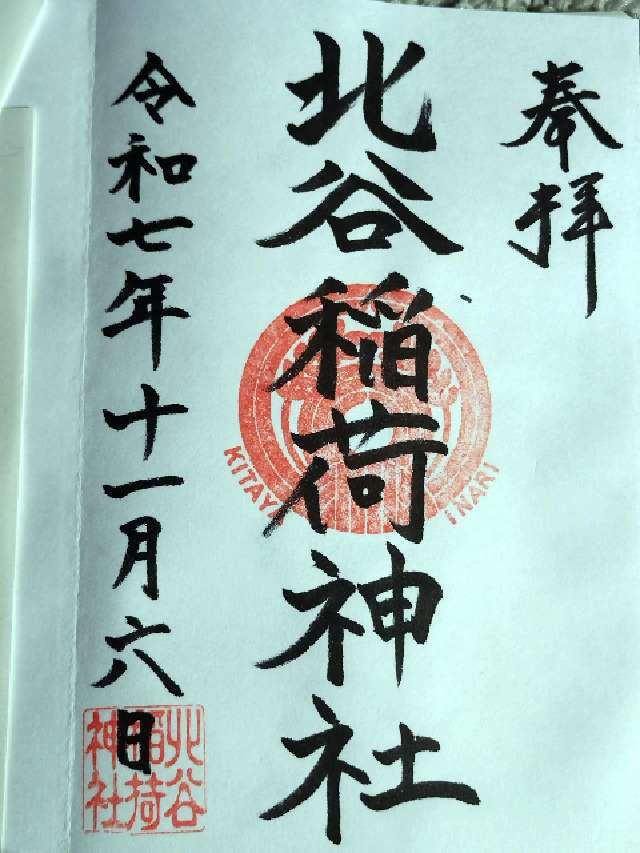 奉拝
北谷稲荷神社
KITAYA INARI
令和七年十一月六日
北谷
稲荷
神社